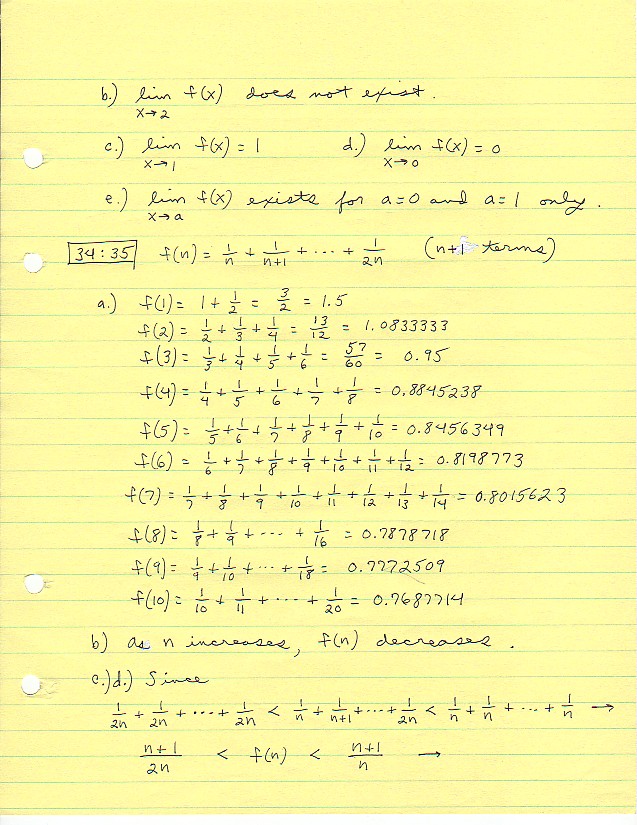 b.) lim x→2 f(x) does not exist.
c.) lim x→1 f(x) = 1 d.) lim x→0 f(x) = 0
e.) lim x→a f(x) exists for a=0 and a=1 only.
34:35 f(n) = 1/n + 1/(n+1) + ··· + 1/2n (n+1 terms)
a.) f(1) = 1 + 1/2 = 3/2 = 1.5
f(2) = 1/2 + 1/3 + 1/4 = 13/12 = 1.0833333
f(3) = 1/3 + 1/4 + 1/5 + 1/6 = 57/60 = 0.95
f(4) = 1/4 + 1/5 + 1/6 + 1/7 + 1/8 = 0.8845238
f(5) = 1/5 + 1/6 + 1/7 + 1/8 + 1/9 + 1/10 = 0.8456349
f(6) = 1/6 + 1/7 + 1/8 + 1/9 + 1/10 + 1/11 + 1/12 = 0.8198773
f(7) = 1/7 + 1/8 + 1/9 + 1/10 + 1/11 + 1/12 + 1/13 + 1/14 = 0.8015623
f(8) = 1/8 + 1/9 + ··· + 1/16 = 0.7878718
f(9) = 1/9 + 1/10 + ··· + 1/18 = 0.7772509
f(10) = 1/10 + 1/11 + ··· + 1/20 = 0.7687714
b) as n increases, f(n) decreases.
c.)d.) Since
1/2n + 1/2n + ··· + 1/2n < 1/n + 1/(n+1) + ··· + 1/2n < 1/n + 1/n + ··· + 1/n →
(n+1)/2n < f(n) < (n+1)/n →